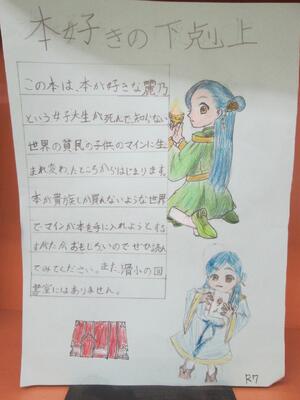 本好きの下剋上
この本は、本が好きな麗乃
という女子大生が死んで、知らない
世界の貧民の子供のマインに生
まれ変わったところからはじまります。
本が貴族しか買えないような世界
でマインが本を手に入れようとす
るすがたが、おもしろいのでぜひ読ん
でみてください。また、滑小の図
書室にはありません。
R7